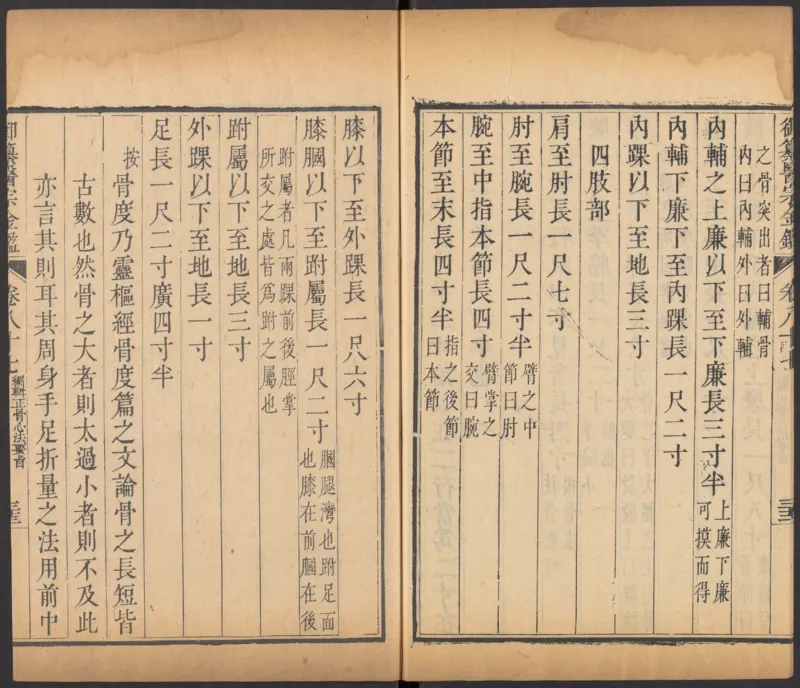 御纂醫宗金鑑
卷八十七
之骨突出者曰輔骨
內曰內輔外曰外輔
內輔之上廉以下至下廉長三寸半
上廉下廉
可摸而得
內輔下廉下至內踝長一尺二寸
內踝以下至地長三寸
四肢部
肩至肘長一尺七寸
肘至腕長一尺二寸半
臂之中
節曰肘
腕至中指本節長四寸
臂掌之
交曰腕
本節至末長四寸半
指之後節
曰本節
膝以下至外踝長一尺六寸
膝膕以下至跗屬長一尺二寸
膕腿灣也跗足面
也膝在前膕在後
跗屬者凡兩踝前後脛掌
所交之處皆為跗之屬也
跗屬以下至地長三寸
外踝以下至地長一寸
足長一尺二寸廣四寸半
按骨度乃靈樞經骨度篇之文論骨之長短皆
古數也然骨之大者則太過小者則不及此
亦言其則耳其周身手足折量之法用前中
御纂醫宗金鑑
卷八十七
編輯正骨心法要旨